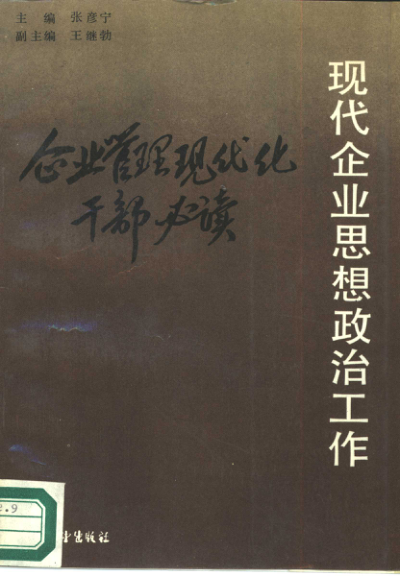 主 编 张彦宁
副主编 王继勃
现代企业思想政治工作
企业管理现代化
干部必读
2.9
出版社